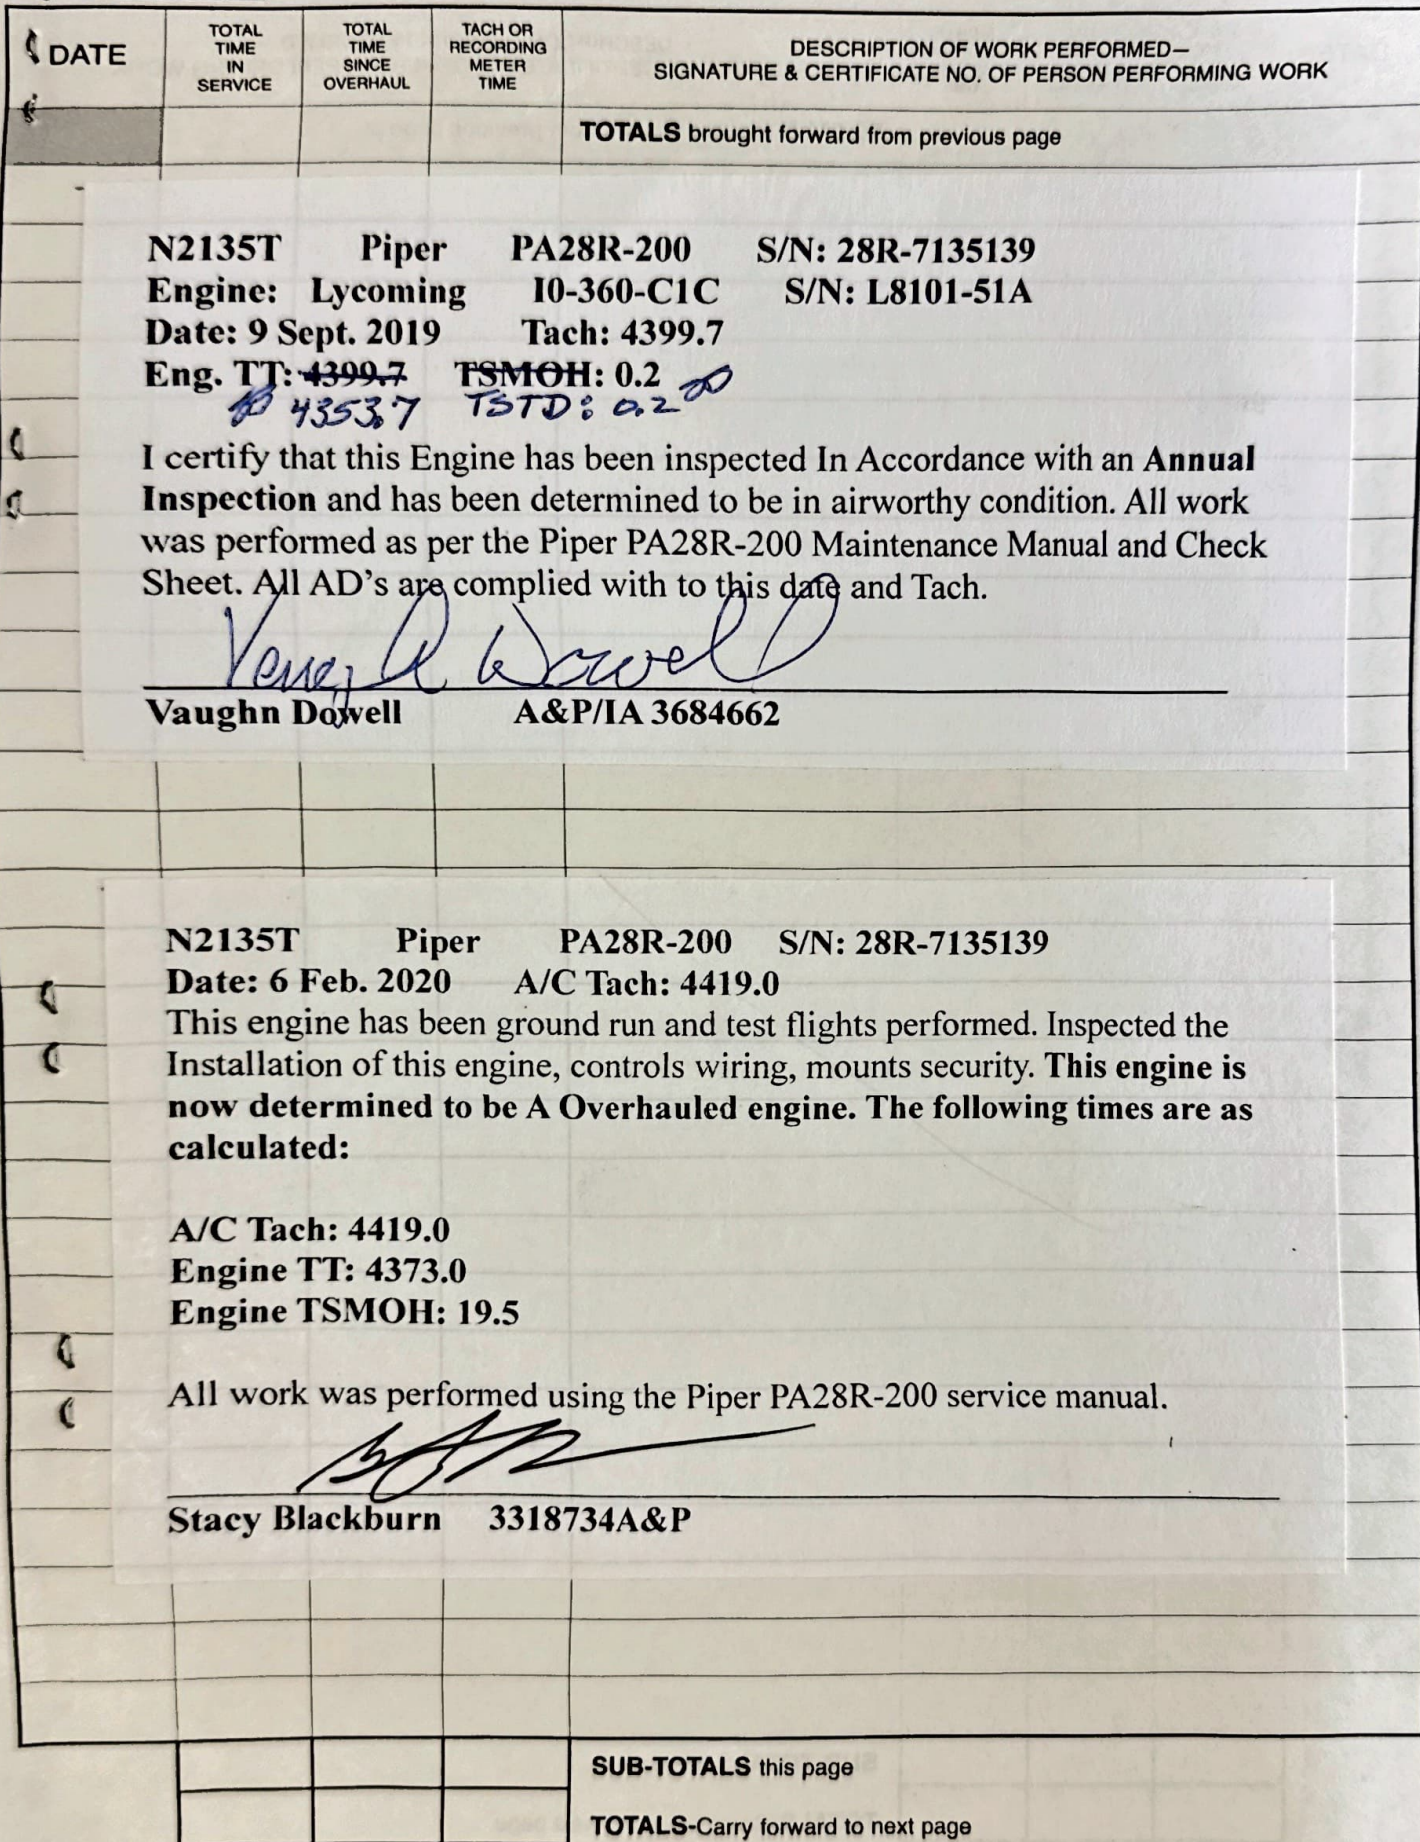 DATE
TOTAL TIME IN SERVICE
TOTAL TIME SINCE OVERHAUL
TACH OR RECORDING METER TIME
DESCRIPTION OF WORK PERFORMED—
SIGNATURE & CERTIFICATE NO. OF PERSON PERFORMING WORK
TOTALS brought forward from previous page
N2135T Piper PA28R-200 S/N: 28R-7135139
Engine: Lycoming I0-360-C1C S/N: L8101-51A
Date: 9 Sept. 2019 Tach: 4399.7
Eng. TT: 4399.7 TSMOH: 0.2
4353.7 TSTD: 0.2
I certify that this Engine has been inspected In Accordance with an Annual
Inspection and has been determined to be in airworthy condition. All work
was performed as per the Piper PA28R-200 Maintenance Manual and Check
Sheet. All AD's are complied with to this date and Tach.
Vaughn Dowell A&P/IA 3684662
N2135T Piper PA28R-200 S/N: 28R-7135139
Date: 6 Feb. 2020 A/C Tach: 4419.0
This engine has been ground run and test flights performed. Inspected the
Installation of this engine, controls wiring, mounts security. This engine is
now determined to be A Overhauled engine. The following times are as
calculated:
A/C Tach: 4419.0
Engine TT: 4373.0
Engine TSMOH: 19.5
All work was performed using the Piper PA28R-200 service manual.
Stacy Blackburn 3318734A&P
SUB-TOTALS this page
TOTALS-Carry forward to next page